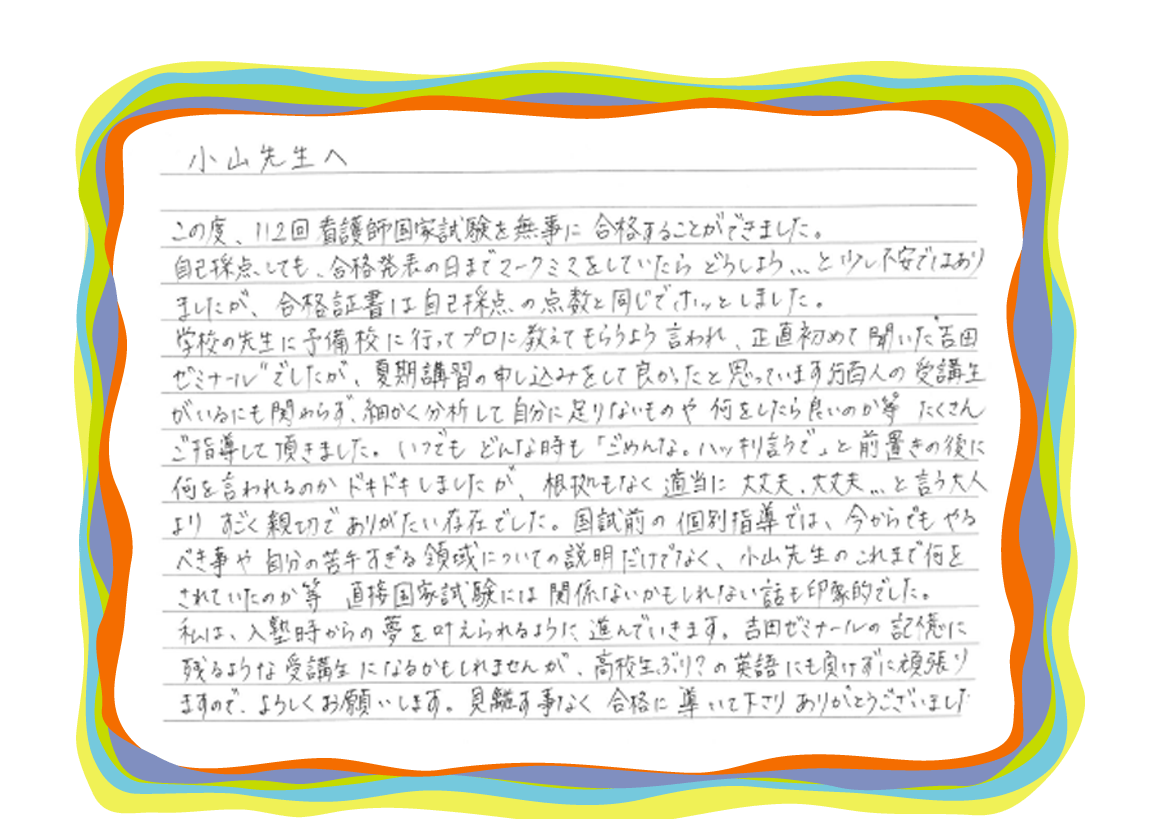 小山先生へ
この度、112回看護師国家試験を無事に合格することができました。
自己採点しても、合格発表の日までマークミスをしていたらどうしよう...と少し不安ではあり
ましたが、合格証書は自己採点の点数と同じでホッとしました。
学校の先生に予備校に行ってプロに教えてもらうよう言われ、正直初めて聞いた“吉田
ゼミナール”でしたが、夏期講習の申し込みをして良かったと思っています。何百人の受講生
がいるにも関わらず、細かく分析して自分に足りないものや何をしたら良いのか等 たくさん
ご指導して頂きました。いつでもどんな時も「ごめんな。ハッキリ言うで」と前置きの後に
何を言われるのかドキドキしましたが、根拠もなく適当に大丈夫、大丈夫...と言う大人
よりすごく親切でありがたい存在でした。国試前の個別指導では、今からでもやる
べき事や自分の苦手すぎる領域についての説明だけでなく、小山先生のこれまで何を
されていたのか等 直接国家試験には関係ないかもしれない話も印象的でした。
私は、入塾時からの夢を叶えられるように進んでいきます。吉田ゼミナールの記憶に
残るような受講生になるかもしれませんが、高校生ぶり?の英語にも負けずに頑張り
ますので、よろしくお願いします。見離す事なく合格に導いて下さりありがとうございました